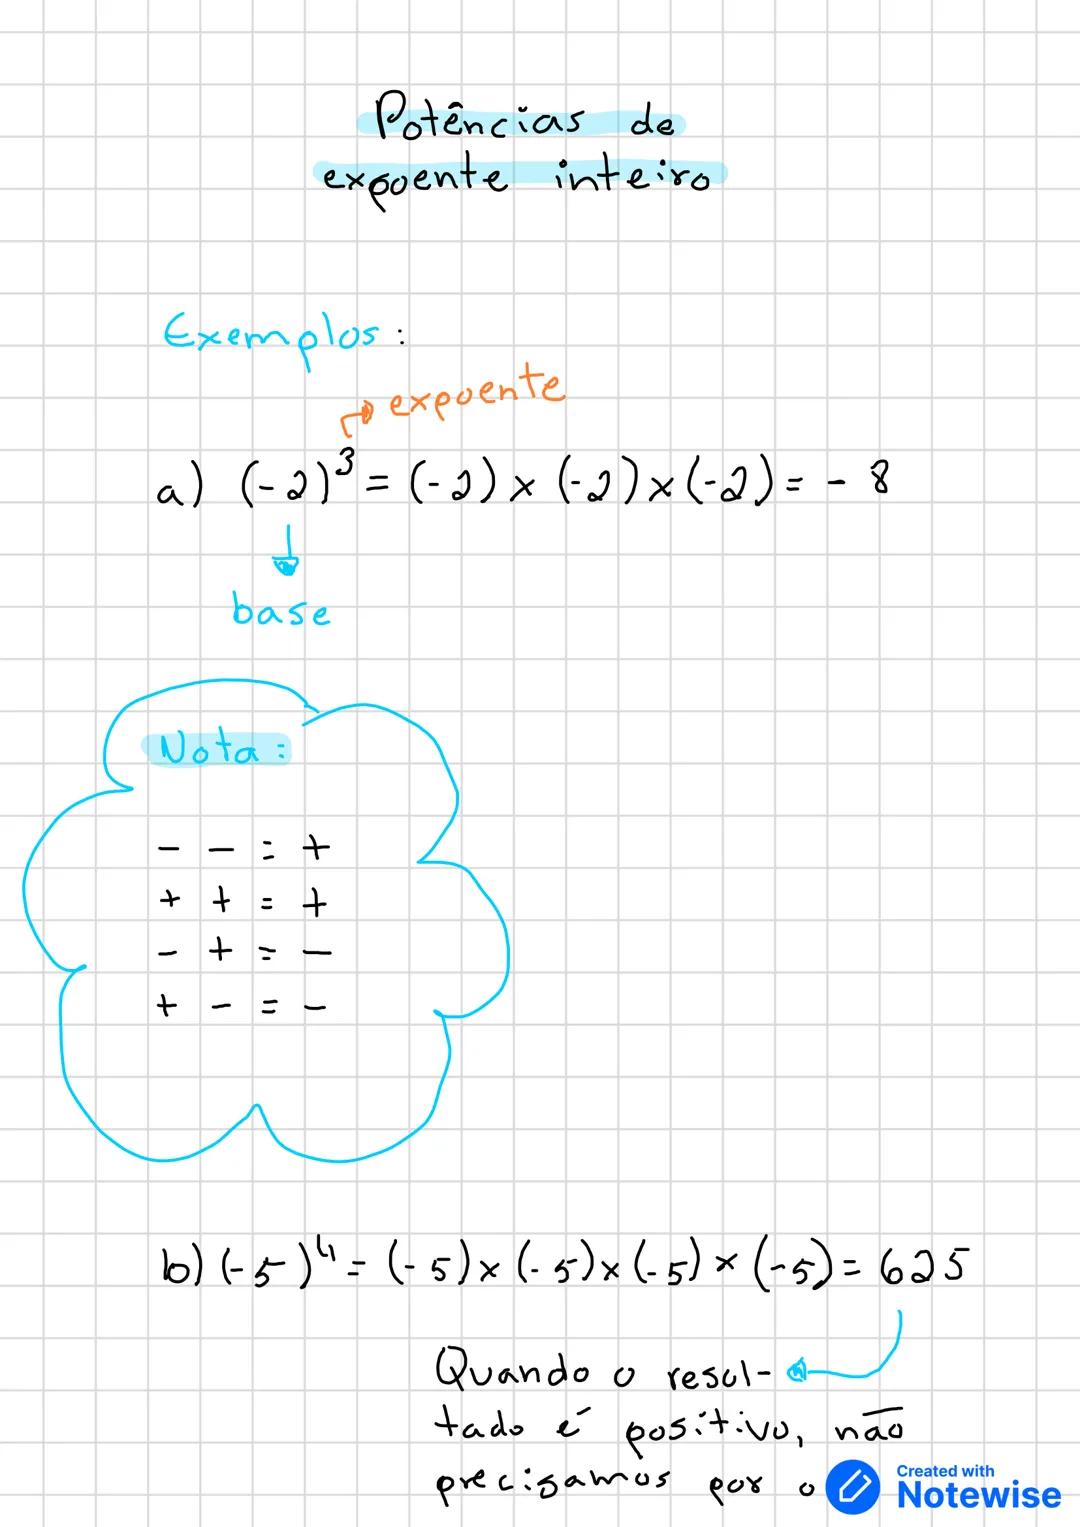 Potências de
expoente inteiro
Exemplos :
expoente
a) (-2)³ = (-2) × (-2) × (-2) = - 8
base
Nota :
- - = +
+ + = +
- + = -
+ - = -
b) (-5)⁴ = (-5) × (-5) × (-5) × (-5) = 625
Quando o resul-
tado é positivo, não
precisamos por o
Created with
Notewise